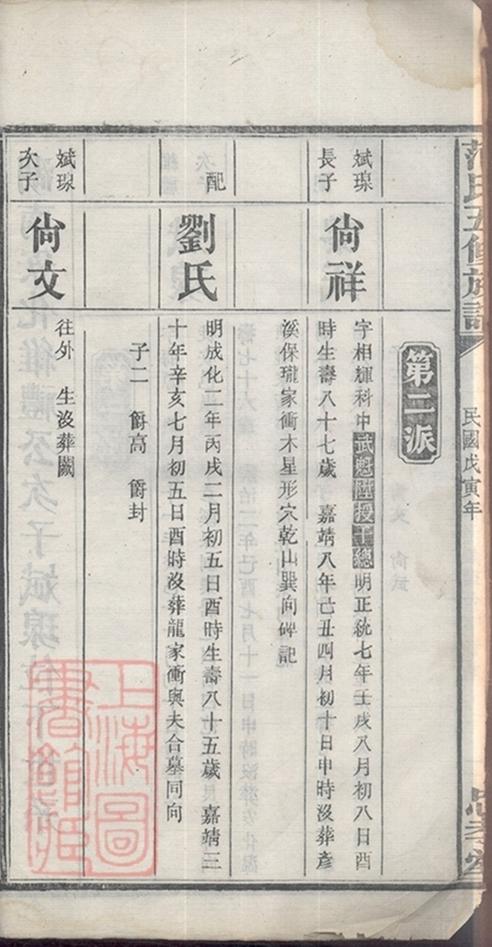 范氏五修族譜
民國戊寅年
第二派
斌璟長子
尙祥
字相輝科中武魁陞授千總明正統七年壬戌八月初八日酉
時生壽八十七歲 嘉靖八年己丑四月初十日申時沒葬彥
溪保瓏家衝木星形穴乾山巽向碑記
配
劉氏
明成化二年丙戌二月初五日酉時生壽八十五歲 嘉靖三
十年辛亥七月初五日酉時沒葬龍家衝與夫合墓同向
子二 爵高 爵封
斌璟次子
尙文
往外 生沒葬闕
上海圖
書館藏